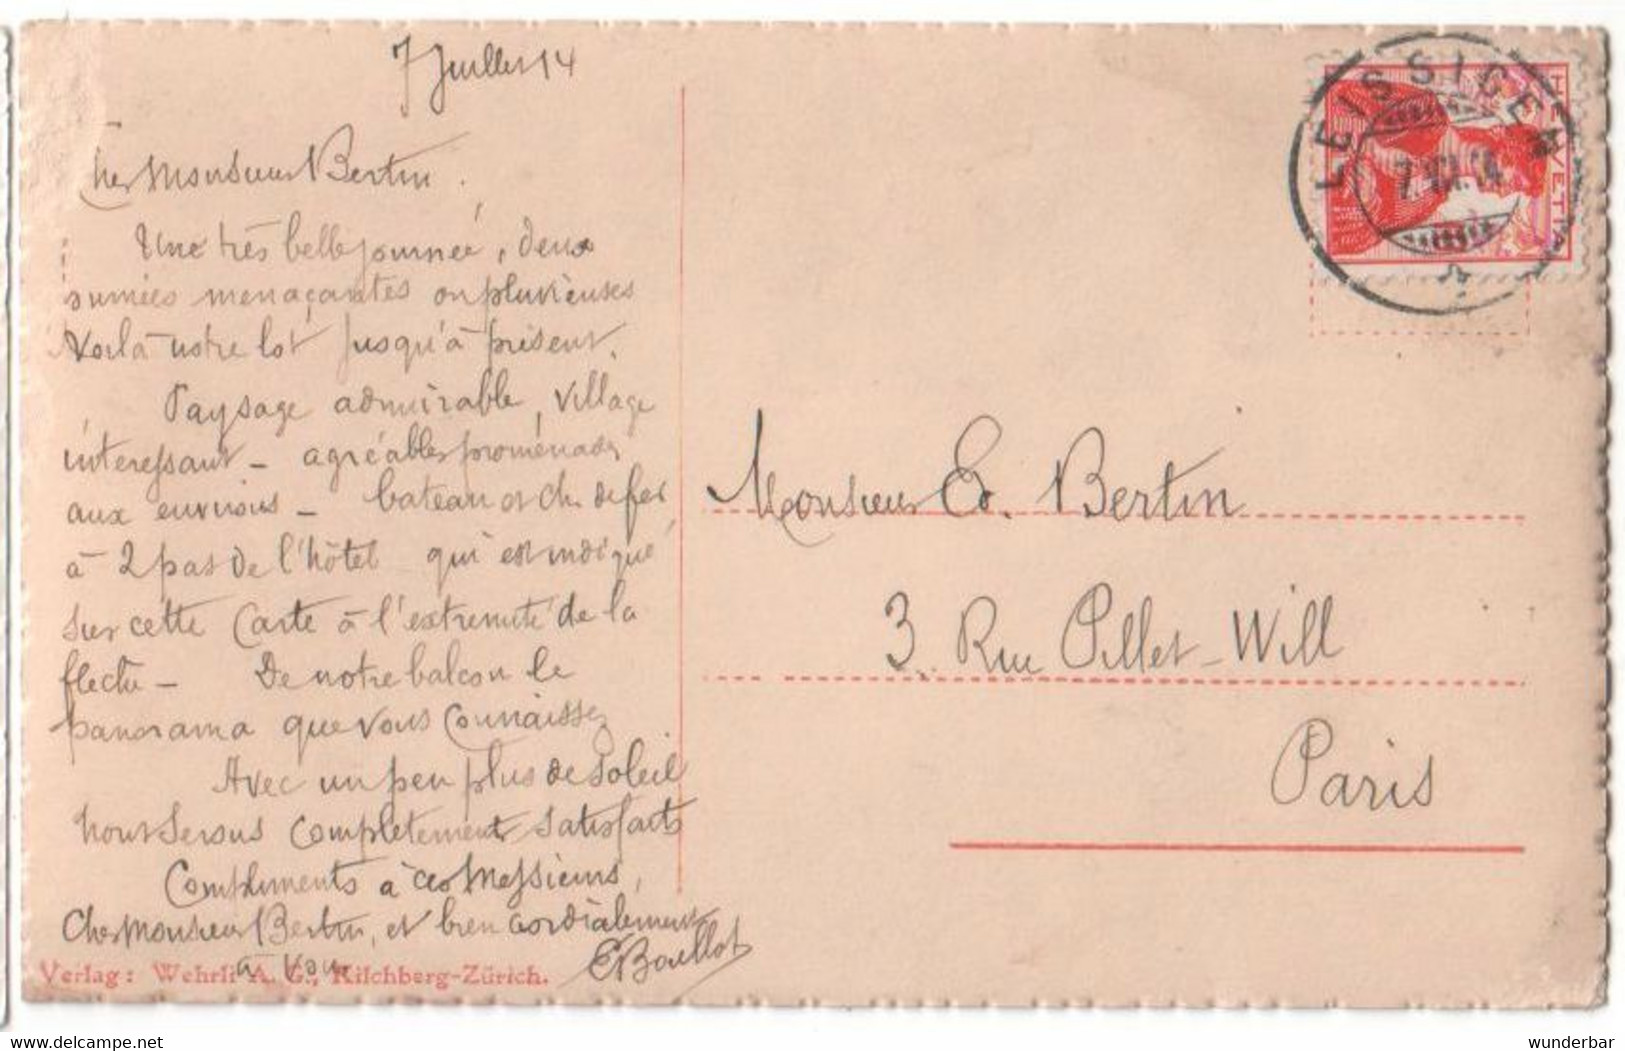 7 Juillet 14
Cher Monsieur Bertin.
Une très belle journée, deux
menaçantes ou pluvieuses
Voilà notre lot jusqu'à présent.
Paysage admirable, village
interessant - agréables promenades
aux environs - bateau et ch. de fer
à 2 pas de l'hôtel qui est indiqué
sur cette Carte à l'extremité de la
fleche - De notre balcon le
panorama que vous connaissez
Avec un peu plus de soleil
nous serons completement satisfaits
Compliments à ces Messieurs,
Cher Monsieur Bertin, et bien cordialement
à vous
EBaillot
Verlag: Wehrli A. G., Kilchberg-Zürich.
LEISSIGEN
7.VII.14
HELVETIA
Monsieur Ed. Bertin
3 Rue Pillet-Will
Paris
www.delcampe.net
wunderbar